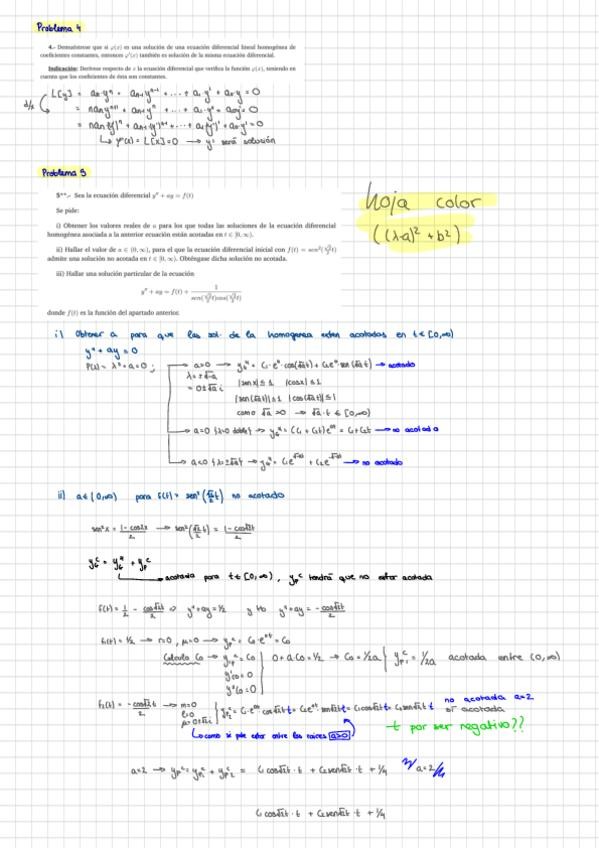 Problema 4
4.- Demuéstrese que si φ(x) es una solución de una ecuación diferencial lineal homogénea de
coeficientes constantes, entonces φ'(x) también es solución de la misma ecuación diferencial.
Indicación: Derívese respecto de x la ecuación diferencial que verifica la función φ(x), teniendo en
cuenta que los coeficientes de ésta son constantes.
L[y] = an·yⁿ + an-1yⁿ⁻¹ + ... + a₁y' + a₀y = 0
d/dx
L[x] = 0 → y' será solución
Problema 5
5**.- Sea la ecuación diferencial y'' + ay = f(t)
Se pide:
hoja color
((λ-a)² + b²)
i) Obtener los valores reales de a para los que todas las soluciones de la ecuación diferencial
homogénea asociada a la anterior ecuación están acotadas en t ∈ [0, ∞).
ii) Hallar el valor de a ∈ (0, ∞), para el que la ecuación diferencial inicial con f(t) = sen²(√2/2 t)
admite una solución no acotada en t ∈ [0, ∞). Obténgase dicha solución no acotada.
iii) Hallar una solución particular de la ecuación
y'' + ay = f(t) + 1/(sen(√2/2 t)cos(√2/2 t))
donde f(t) es la función del apartado anterior.
i) Obtener a para que las sol. de la homogenea esten acotadas en t ∈ [0,∞)
y'' + ay = 0
P(λ) = λ² + a = 0 ;
a>0 → = C₁·e⁰·cos(√a t) + C₂e⁰·sen(√a t) → acotado
λ = ±√-a
= 0±√a i
|sen x| ≤ 1 |cos x| ≤ 1
|sen(√a t)| ≤ 1 |cos(√a t)| ≤ 1
como √a > 0 → √a·t ∈ [0,∞)
a=0 (λ=0 doble) → = (C₁ + C₂t)e⁰ᵗ = C₁ + C₂t → no acotada
a<0 → no acotado
ii) a ∈ (0,∞) para f(t) = sen²(√2/2 t) no acotado
sen²x = 1-cos2x/2 → sen²(√2/2 t) = 1-cos√2t/2
acotada para t ∈ [0,∞), tendrá que no estar acotada
f(t) = 1/2 - cos√2t/2 ⇒ y''+ay = 1/2 y y''+ay = -cos√2t/2
f₁(t) = 1/2 → m=0, μ=0 → = C₀·e⁰ᵗ = C₀
Calculo C₀ → = C₀
0 + a·C₀ = 1/2 → C₀ = 1/2a
= 1/2a acotada entre (0,∞)
y'c₀ = 0
y''c₀ = 0
f₂(t) = -cos√2t/2 → m=0
no acotada a=2
si acotada
como si pde estar entre las raices a>0
t por ser negativo??
a=2 → = C₁cos√2t·t + C₂sen√2t·t + 1/4 a=2
C₁cos√2t·t + C₂sen√2t·t + 1/4